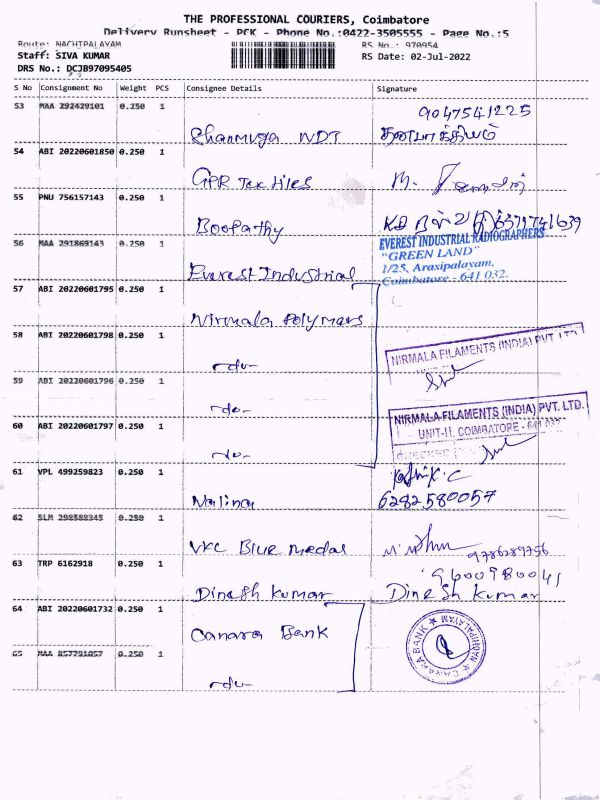 THE PROFESSIONAL COURIERS, Coimbatore
Delivery Runsheet - PCK - Phone No.:0422-3505555 - Page No.:5
Route: NACHIPALAYAM
RS No.: 970954
Staff: SIVA KUMAR
RS Date: 02-Jul-2022
DRS No.: DCJB97095405
S No Consignment No Weight PCS Consignee Details Signature
53 MAA 292429101 0.250 1
9047541225
Shanmuga NDT
54 ABI 20220601850 0.250 1
GPR Textiles M.
55 PNU 756157143 0.250 1
Boopathy
56 MAA 291869143 0.250 1
EVEREST INDUSTRIAL RADIOGRAPHERS
"GREEN LAND"
1/25, Arasipalayam,
Coimbatore - 641 032.
Everest Industrial
57 ABI 20220601795 0.250 1
Nirmala Polymers
58 ABI 20220601798 0.250 1
NIRMALA FILAMENTS (INDIA) PVT LTD
-do-
59 ABI 20220601796 0.250 1
-do-
NIRMALA FILAMENTS (INDIA) PVT. LTD.
UNIT-II, COIMBATORE - 641 032
60 ABI 20220601797 0.250 1
-do-
61 VPL 499259823 0.250 1
Karthik.C
Nalina 6282580057
62 SLM 298588345 0.250 1
VKC Blue Medal 9786289756
63 TRP 6162918 0.250 1
9600980041
Dinesh Kumar Dinesh Kumar
64 ABI 20220601732 0.250 1
Canara Bank
CANARA BANK
65 MAA 857791857 0.250 1
-do-